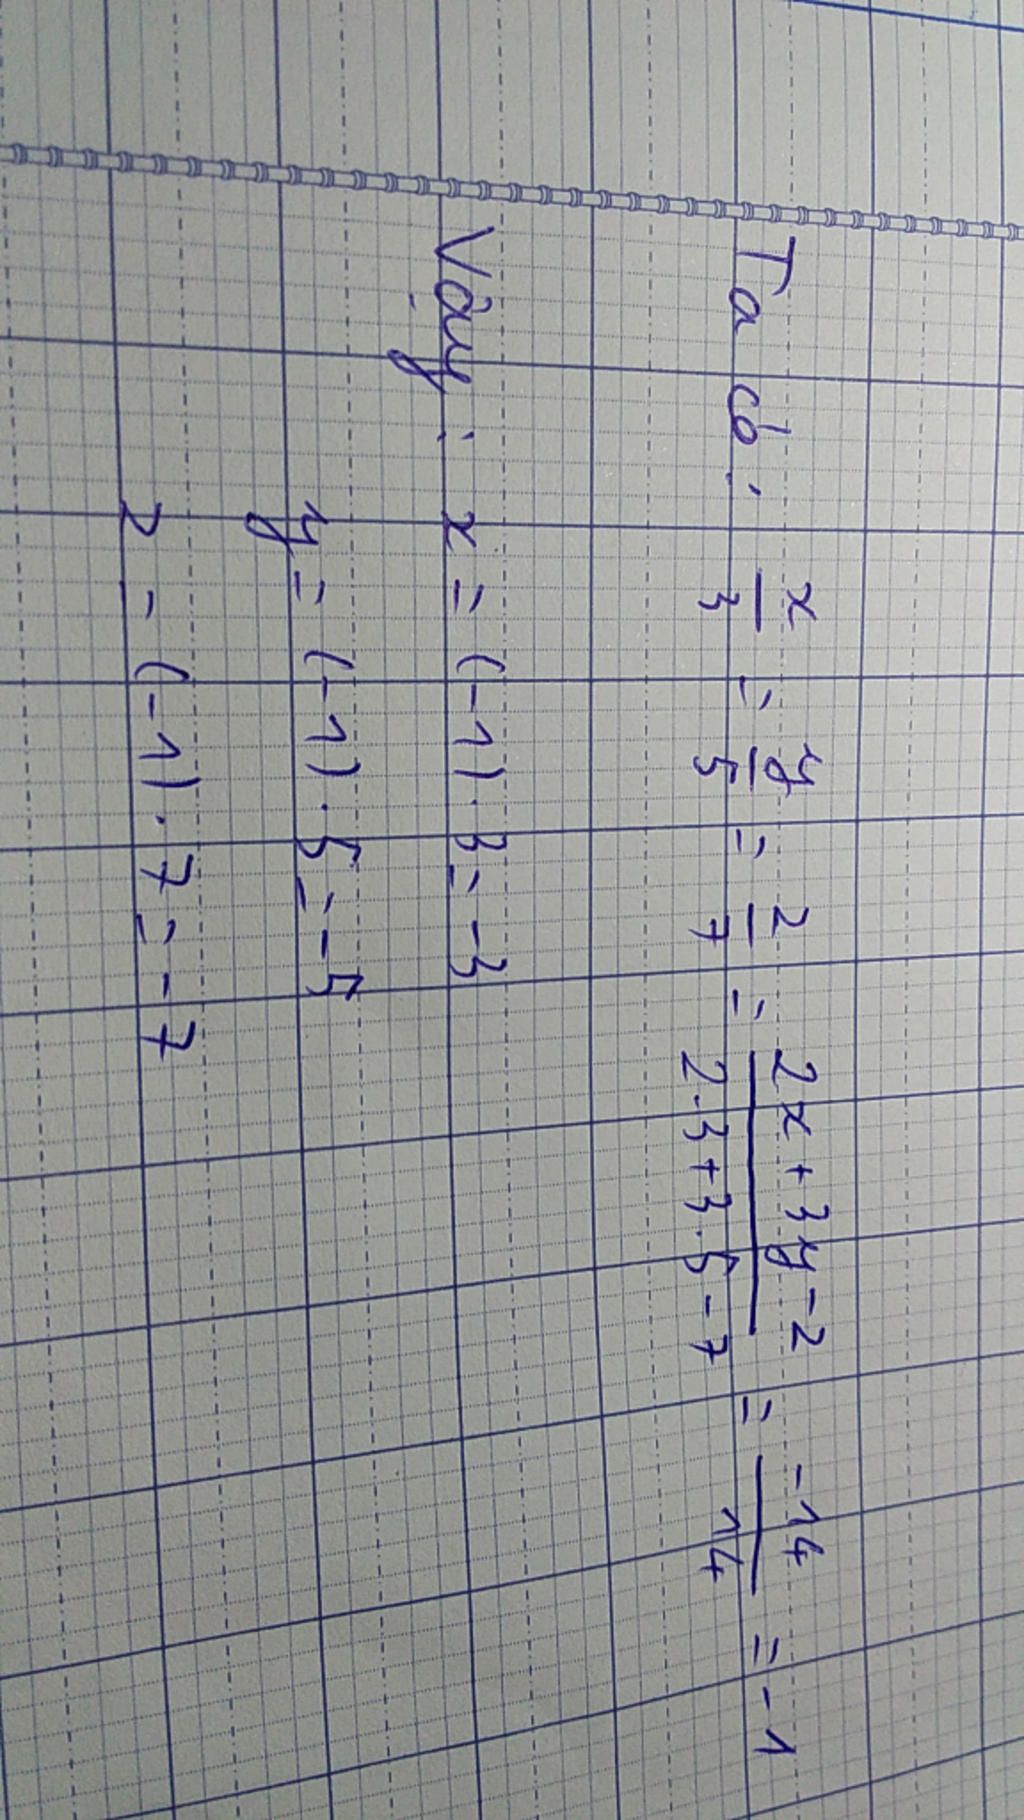 Ta có: x/3 = y/5 = z/7 = 2x+3y-z/2.3+3.5-7 = -14/14 = -1
Vậy: x = (-1).3 = -3
y = (-1).5 = -5
z = (-1).7 = -7